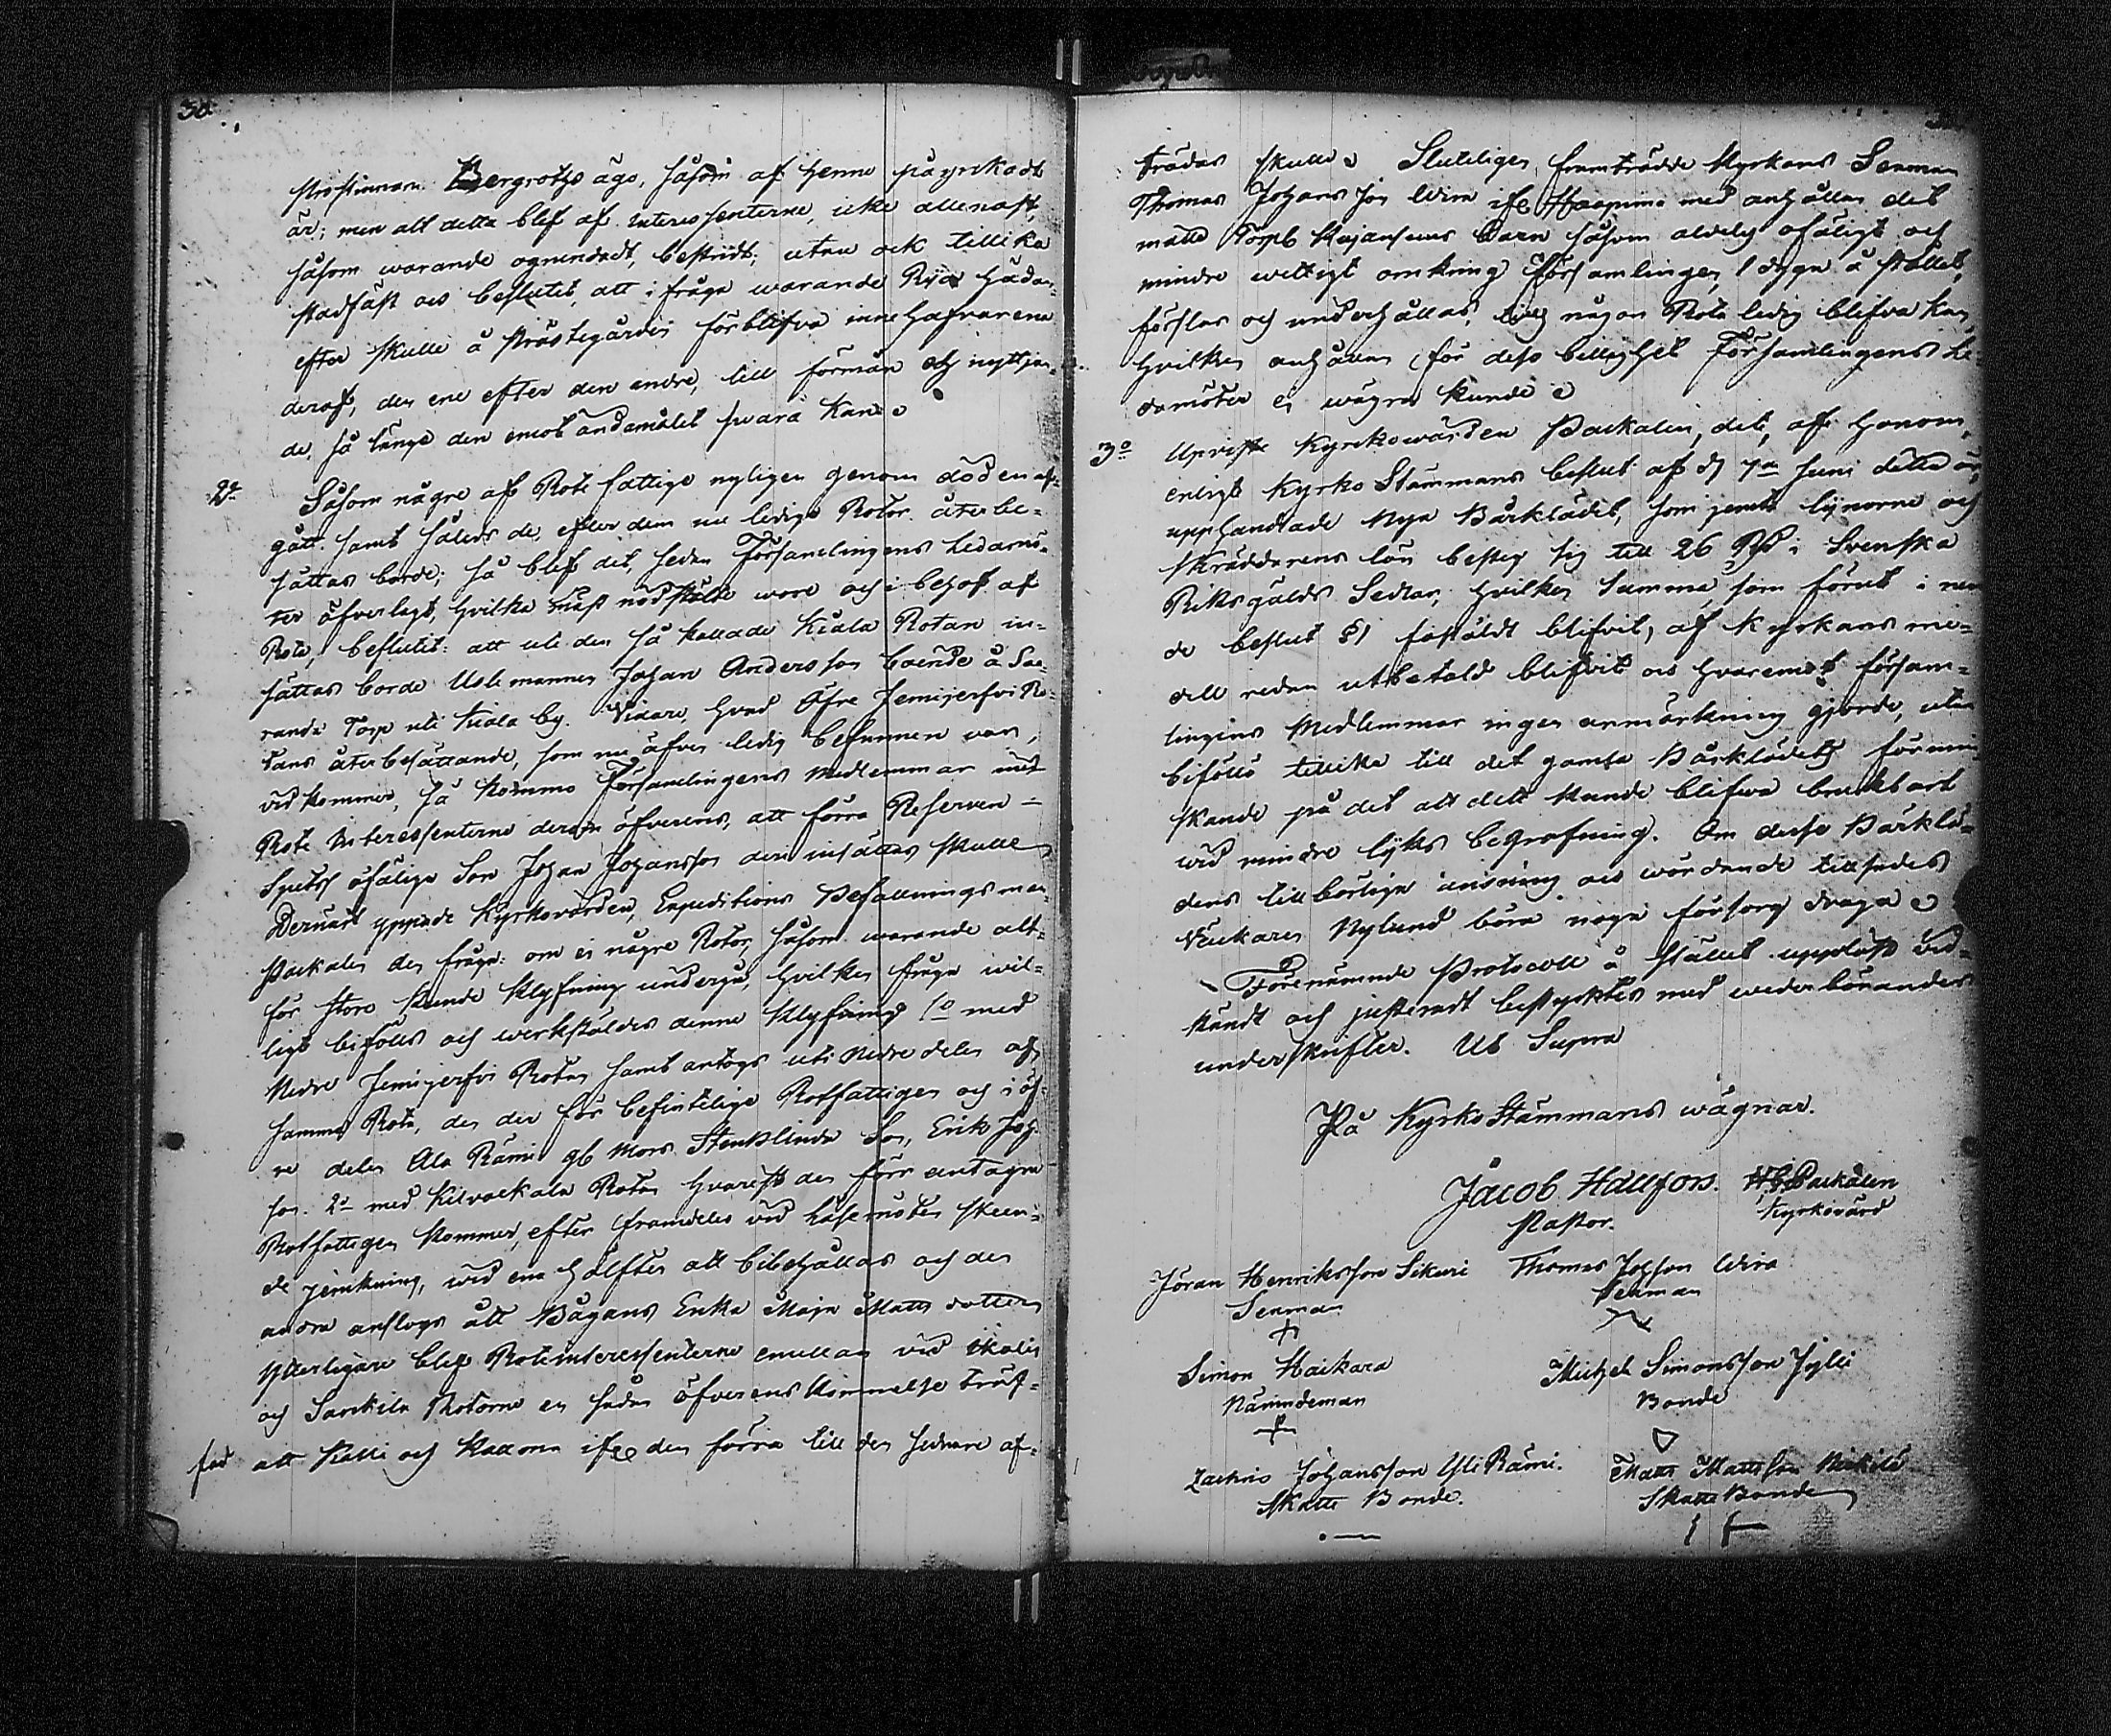 38.
Prostinnan Bergroths ägo, såsom af henne påyrkadt
är; men alt detta blef af Interessenterne, icke allenast,
såsom warande ogrundadt, bestridt; utan ock tillika
stadfäst och beslutit, att i fråga warande Rya hädan-
efter skulle å Prästegården förblifva innehafvarena
deraf, den ene efter den andre, till förmån och nyttjan-
de, så länge den emot ändamålet svara kan.
2o Såsom någre af Rote fattige nyligen genom döden af-
gått samt således de, efter dem nu ledige Rotor återbe-
sättas borde; så blef det, sedan Församlingens Ledamö-
ter öfverlagt, hvilka mäst nödstälde wore och i behof af
Rote, beslutit: att uti den så kallade Kiala Rotan in-
sättas borde Usle mannen Johan Andersson boende å Saa-
randa Torp uti Kiala by. Vidare, hvad Öfre Jemijerfvi Ro-
tans återbesättande, som nu äfven ledig befunnen var,
vidkommer, så kommo Församlingens Medlemmar med
Rote Interessenterne derom öfverens, att förra Reserven
Sputs ofälige Son Johan Johansson deri insättas skulle
Dernäst yppade Kyrkovärden, Expeditions Befallningsman
Packalen den fråga: om ej någre Rotor, såsom warande alt-
för stora kunde klyfning undergå, hvilken fråga wil-
ligt bifölls och werkstäldes denna klyfning 1o med
Nedre Jemijerfvi Rotan samt antogs uti Nedre delen af
samma Rota, den der för befintelige Rotfattigen och i öf-
re delen Ala Rämi gb Mors Stenklinda Son, Erik Joh
son. 2o med Kilvackala Rotan hvarest den förr antagne
Rotfattigen kommer, efter framdeles vid Läsemöten skeen-
de jemkning, wid ena hälften att bibehållas och den
andra anslogs åt Bågans Enka Maja Matts dotter
Ytterligare blef Rotinteressenterne emellan vid Skola
och Sarkila Rotorne en sådan öfverenskommelse träf-
fad att Kalli och Kaaona ifrån den förra till den sednare af-
trädas skulle. Sluteligen framträdde Kyrkans Sexman
Thomas Johansson Wira ifrån Haapima med anhållan det
måtte Torp Kajansuus Barn såsom aldeles ofäligt och
mindre wettigt omkring Församlingen, 1 dygn å stället,
forslas och underhållas, tils någon Rota ledig blifva kan,
hvilken anhållan för dess billighet Församlingens Le-
damöter ej wägra kunde.
3o Upviste Kyrkowärden Packalen, det, af honom,
enligt Kyrko Stämmans beslut af d 7de Juni detta år,
upphandlade Nya Bårklädet, som jemte lijnorne och
Skräddarens lön besteg sig till 26 Rd i Svenska
Riksgälds Sedlar, hvilken Summa, som förut i nem
de beslut § 1 faststäldt blifvit, af Kyrkans me-
del redan utbetald blifvit och hvaremot Försam-
lingens Medlemmar ingen anmärkning gjorde, utan
biföllo tillika till det gamla Bårklädets förmin-
skande på det att dett kunde blifwa brukbart
wid mindre lijks begrafning. Om desse Bårklä-
ders tillbörliga ansning och wårdande tillsades
Väckaren Nylund böra noga försorg draga.
Förenämnde Protocoll å stället uppläst Ved-
kändt och justeradt bestyrktes med wederbörandes
underskrifter. Ut Supra
På Kyrko Stämmans wägnar.
Jacob Hällfors. HG Packalen
Pastor. Kyrkovärd
Jöran Henriksson Sikuri Thomas Johsson Wira
Sexman Sexman
Simon Haikara Michel Simonsson Jylli
Nämndeman Bonde
Zachris Johansson Yli Rämi. Matts Mattsson Mikild
Skatte Bonde. Skatte Bonde